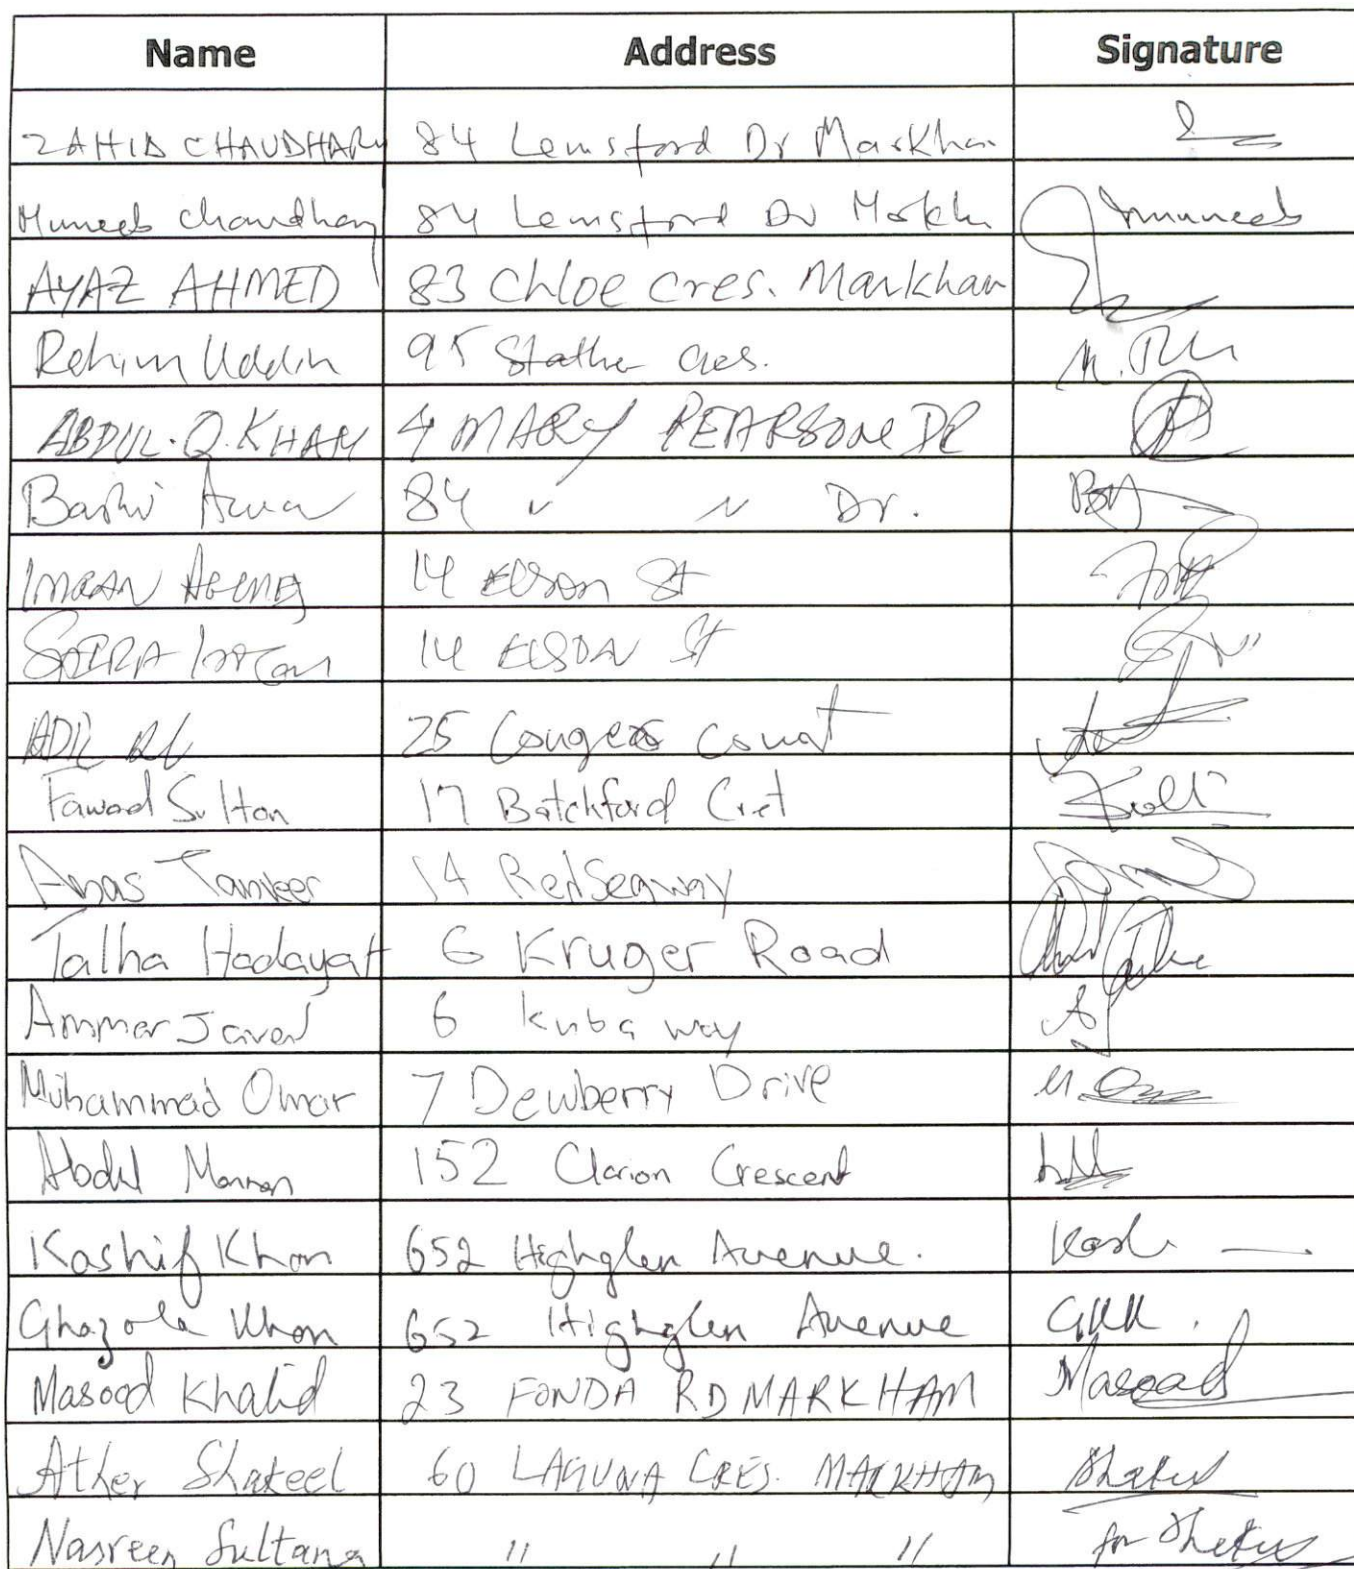 Name Address Signature
ZAHID CHAUDHARY 84 Lemsford Dr Markham
Muneeb Chaudhary 84 Lemsford Dr Muneeb
AYAZ AHMED 83 Chloe Cres. Markham
Rehim Uddin 95 Stather Cres.
ABDUL.Q.KHAN 4 MARY PEARSON DR
84 " " Dr.
IMRAN 14 ELSON St
14 ELSON St
ADIL 25 Court
Fawad Sultan 17 Batchford Cret
Anas Tanveer 14 Redsea way
Talha Hadayat 6 Kruger Road
Ammar Javed 6 Kuba way
Muhammad Omar 7 Dewberry Drive
Abdul Mannan 152 Clarion Crescent
Kashif Khan 652 Highglen Avenue. Kash
Ghazala Khan 652 Highglen Avenue GKK.
Masood Khalid 23 FONDA RD MARKHAM Masood
Ather Shakeel 60 LAGUNA CRES. MARKHAM Shakeel
Nasreen Sultana " " " for Shakeel